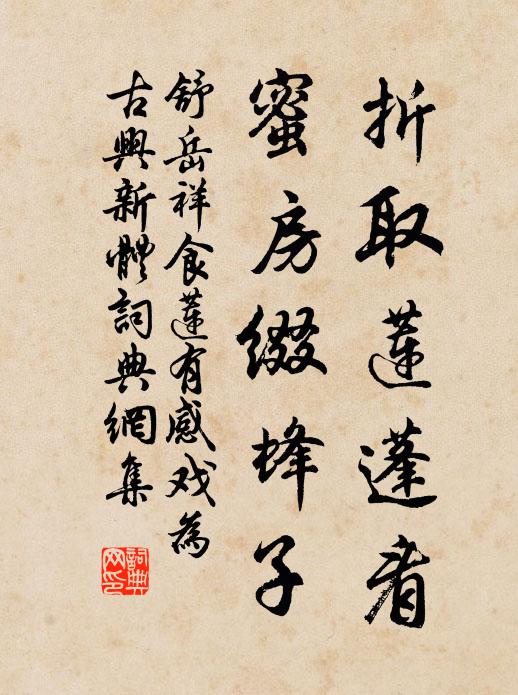 折取蓮蓬看
蜜房綴蜂子
舒岳祥食蓮有感戏為
古興新體詞典網集
詞典網印